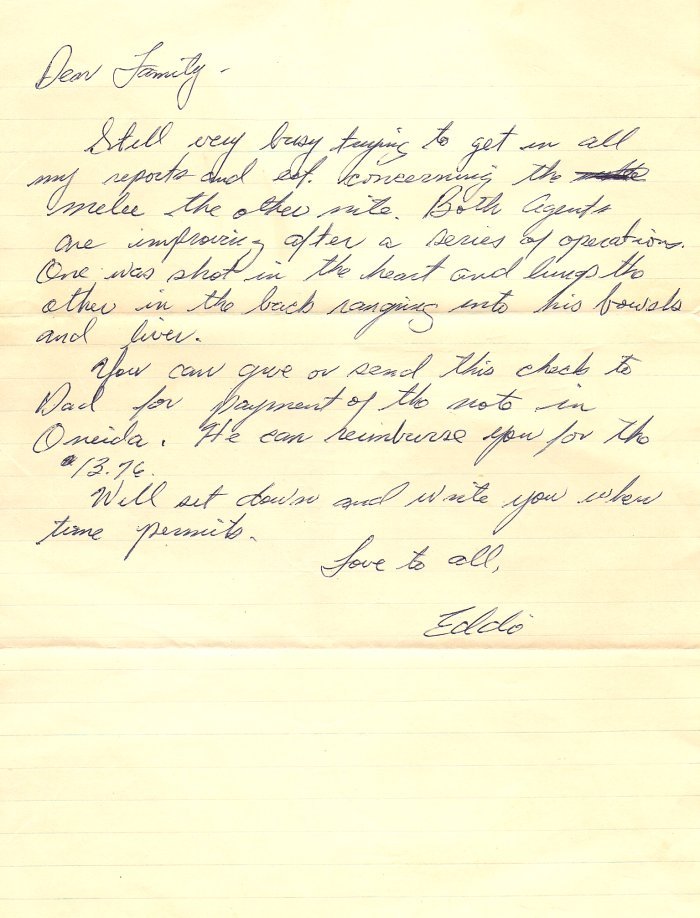 Dear Family -
Still very busy trying to get in all
my reports and ect. concerning the
melee the other nite. Both Agents
are improving after a series of operations.
One was shot in the heart and lungs the
other in the back ranging into his bowels
and liver.
You can give or send this check to
Dad for payment of the note in
Oneida. He can reimburse you for the
$13.76.
Will set down and write you when
time permits.
Love to all,
Eddie